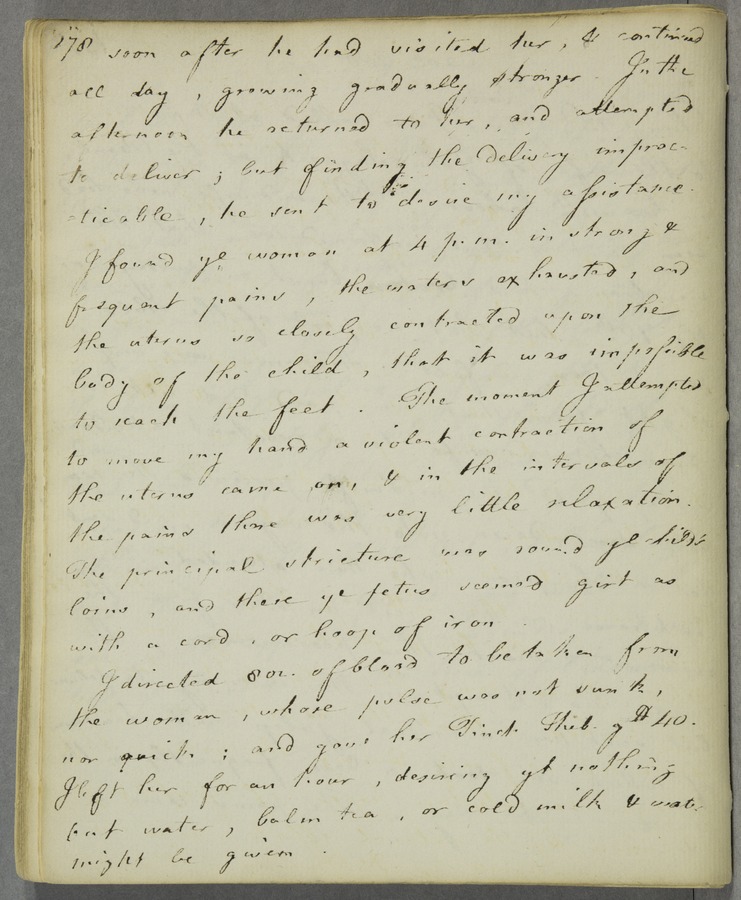 178 soon after he had visited her, & continued
all day, growing gradually stronger. In the
afternoon he returned to her, and attempted
to deliver; but finding the delivery imprac-
-ticable, he sent to desire my assistance.
I found ye woman at 4 p.m. in strong &
frequent pains, the waters exhausted, and
the uterus so closely contracted upon the
body of the child, that it was impossible
to reach the feet. The moment I attempted
to move my hand a violent contraction of
the uterus came on, & in the intervals of
the pains there was very little relaxation.
The principal stricture was round ye child's
loins, and there ye fetus seemed girt as
with a cord, or hoop of iron.
I directed 8 oz. of blood to be taken from
the woman, whose pulse was not sunk,
nor quick; and gave her Tinct. Theb. gtt 40.
I left her for an hour, desiring yt nothing
but water, balm tea, or cold milk & water
might be given.